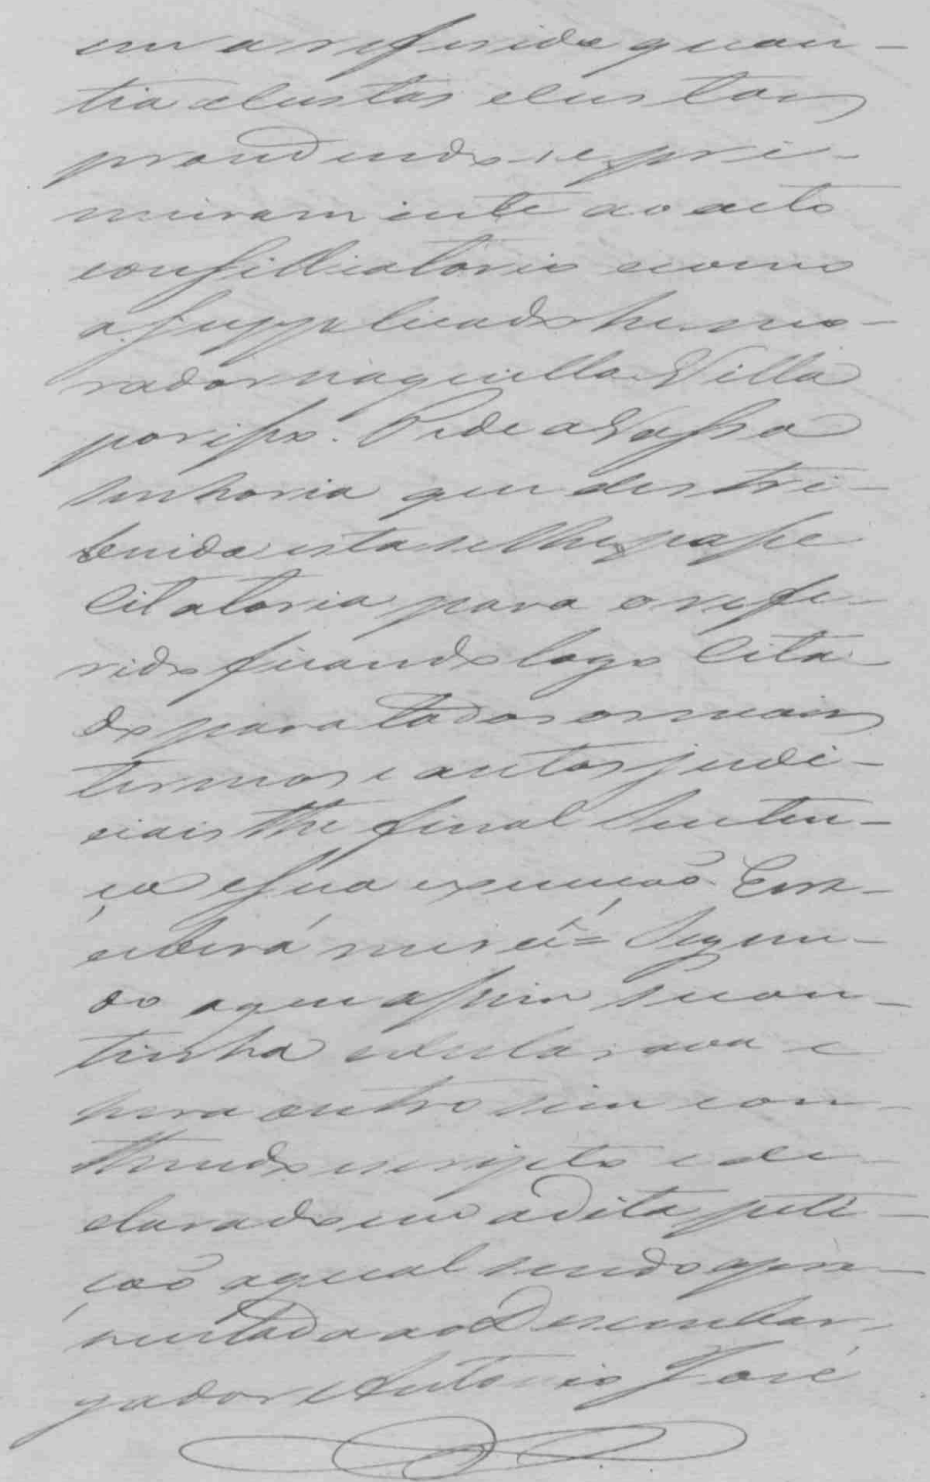 em a referida quan-
tia e custas e custas
procedendo-se pri-
meiramente ao acto
consilliatorio e como
a supplicado he mo-
rador naquella Villa
por isso. Pede a Vossa
senhoria que destri-
buida esta se lhe passe
Citatoria para o refe-
rido ficando logo Cita-
do para todos os mais
termos e autos judi-
ciais the final Senten-
ça e Sua execução E re-
ceberá mercê = Segun-
do o que assim se con-
tinha e declarava e
hera outro sim con-
theudo escripto e de-
clarado em a dita peti-
ção a qual sendo apre-
sentada ao Desembar-
gador Antonio José